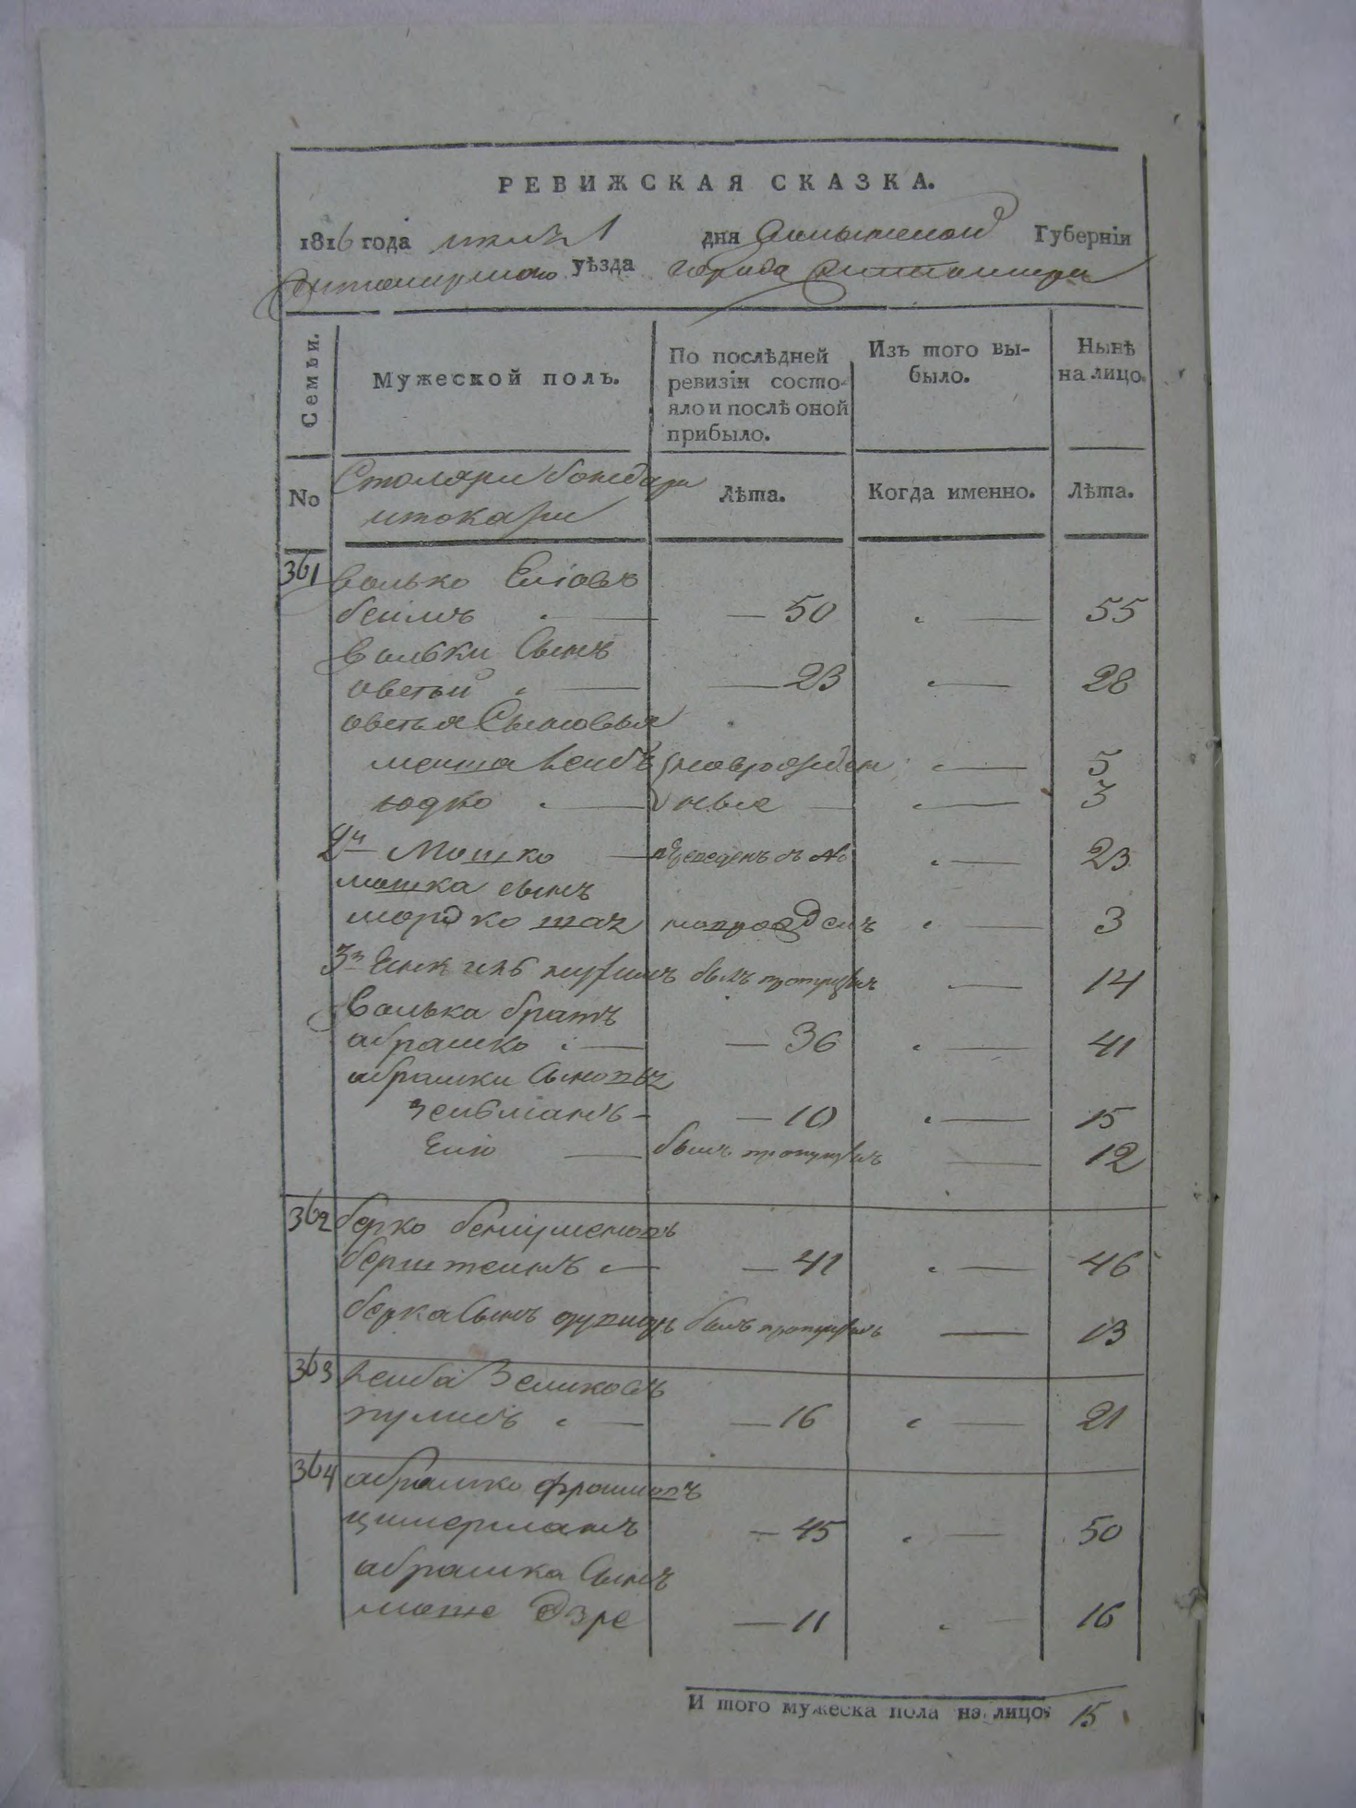 РЕВИЖСКАЯ СКАЗКА.
1816 года июля 1 дня Волынской Губерніи
Житомирского уѣзда города Житомира
Семьи.
Мужеской полъ.
По послѣдней ревизіи состояло и послѣ оной прибыло.
Изъ того выбыло.
Нынѣ на лицо.
No
Столяри бондари
итокари
Лѣта.
Когда именно.
Лѣта.
361 Волько Еліовъ
— 50 — 55
Вольки Сынъ
овсей — 23 — 28
овсея Сыновья
Лейбъ новорожден — 5
юдко ные — 3
2й Мошко — 23
мошка сынъ
мордко новрожденъ — 3
3й былъ пропущенъ — 14
Волька братъ
абрашко — 36 — 41
абрашки Сыновья
— 10 — 15
Еліо былъ пропущенъ — 12
362 берко
берштеинъ — 41 — 46
берка Сынъ былъ пропущенъ — 13
363 Леиба Зеликовъ
— 16 — 21
364 абрамко
цимерманъ — 45 — 50
абрамка Сынъ
— 11 — 16
И того мужеска пола на лицо 15